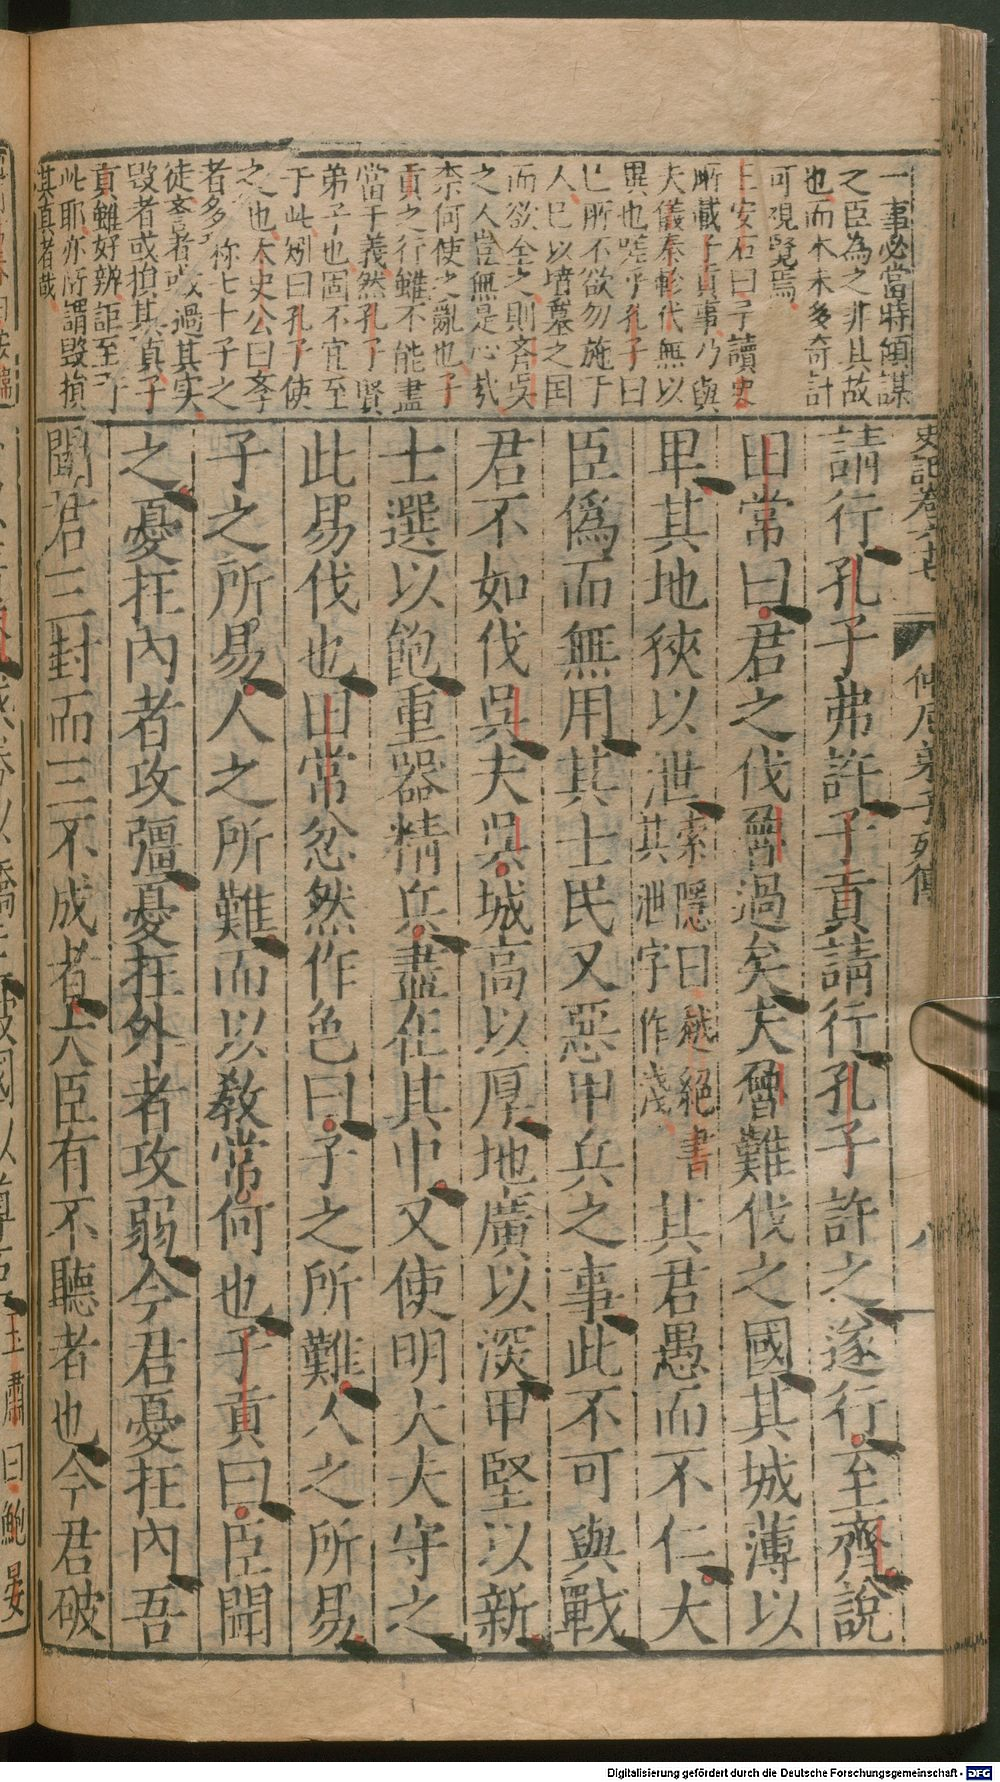 一事必當時傾謀
之臣為之非其故
也而本末多奇計
可視覽焉
王安石曰予讀史
所載子貢事乃與
夫儀秦軫代無以
異也嗟乎孔子曰
己所不欲勿施于
人己以墳墓之国
而欲全之則齊吳
之人豈無是心哉
柰何使之亂也子
貢之行雖不能盡
當于義然孔子賢
弟子也固不宜至
于此矧曰孔子使
之也太史公曰孝
者多称七十子之
徒者或過其实
毀者或損其真子
貢雖好辨詎至于
此耶亦所謂毀損
其真者哉
史記卷六十七
仲尼弟子列傳
八
請行孔子弗許子貢請行孔子許之遂行至齊說
田常曰君之伐魯過矣夫魯難伐之國其城薄以
卑其地狹以泄索隱曰越絕書其泄字作淺其君愚而不仁大
臣偽而無用其士民又惡甲兵之事此不可與戰
君不如伐吳夫吳城高以厚地廣以深甲堅以新
士選以飽重器精兵盡在其中又使明大夫守之
此易伐也田常忿然作色曰子之所難人之所易
子之所易人之所難而以教常何也子貢曰臣聞
之憂在內者攻彊憂在外者攻弱今君憂在內吾
聞君三封而三不成者大臣有不聽者也今君破
王肅曰鮑晏
Digitalisierung gefördert durch die Deutsche Forschungsgemeinschaft - DFG